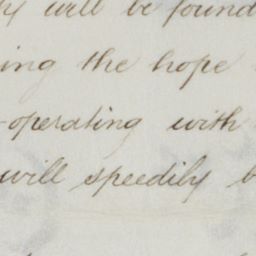 will be found
ing the hope
-operating with
will speedily b